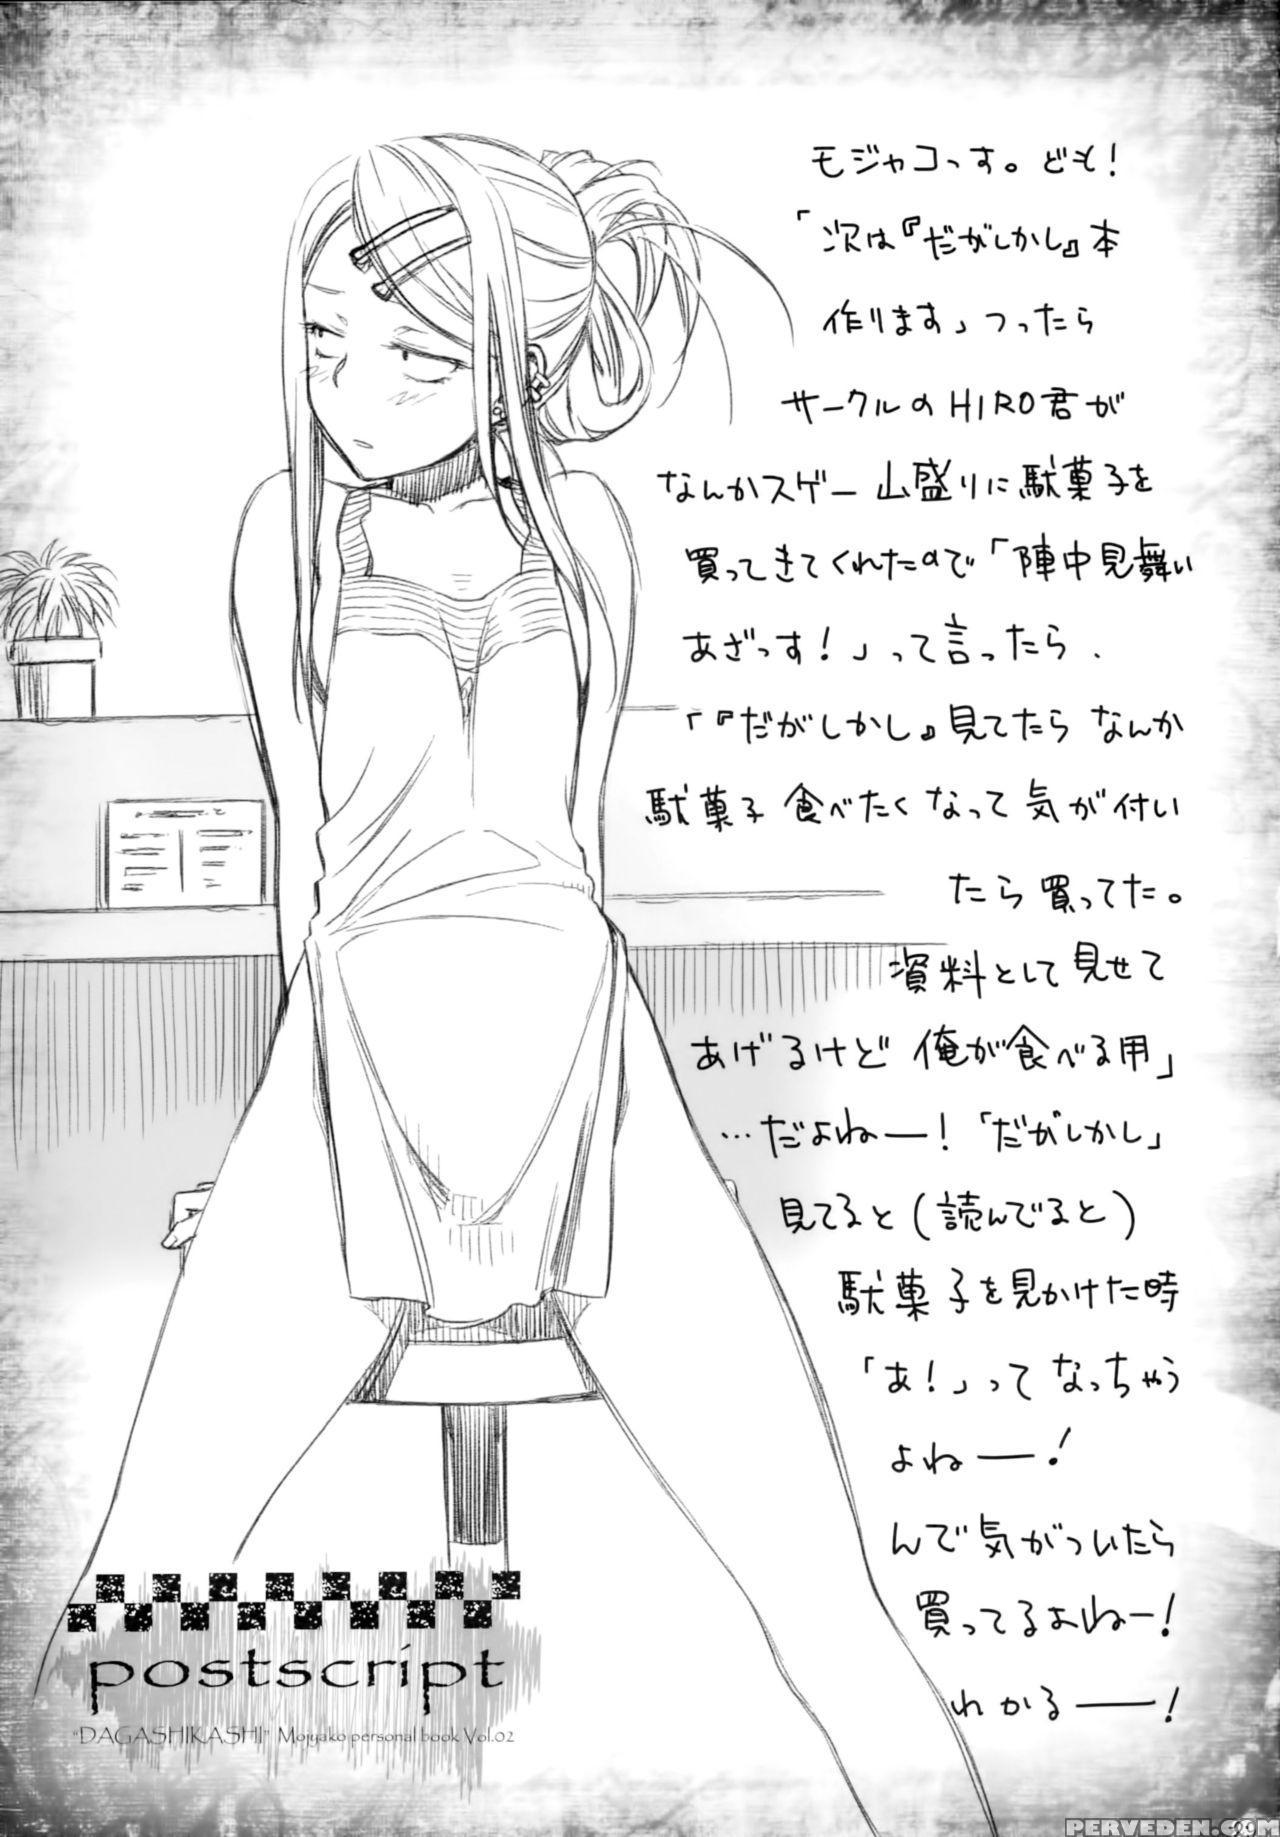 モジャコっす。ども!
「次は『だがしかし』本
作ります」つったら
サークルのHIRO君が
なんかスゲー山盛りに駄菓子を
買ってきてくれたので「陣中見舞い
あざっす!」って言ったら、
「『だがしかし』見てたらなんか
駄菓子食べたくなって気が付い
たら買ってた。
資料として見せて
あげるけど俺が食べる用」
…だよねー!「だがしかし」
見てると(読んでると)
駄菓子を見かけた時
「あ!」ってなっちゃう
よねー!
んで気がついたら
買ってるよねー!
わかるー!
postscript
"DAGASHIKASHI" Mojyako personal book Vol.02
PERVEDEN.COM